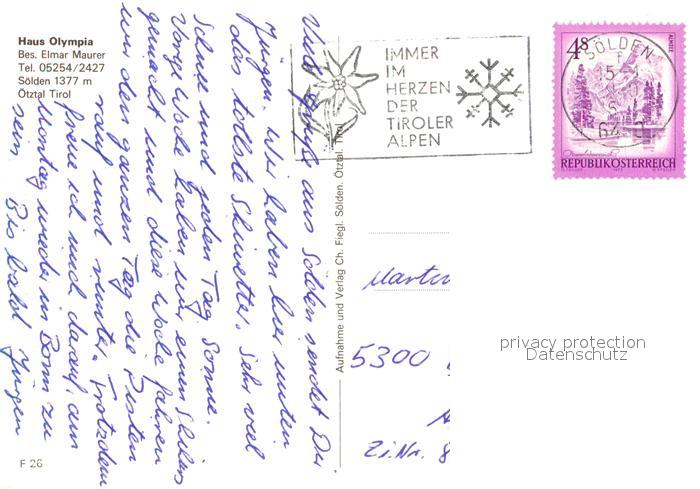 Haus Olympia
Bes. Elmar Maurer
Tel. 05254/2427
Sölden 1377 m
Ötztal Tirol
IMMER
IM
HERZEN
DER
TIROLER
ALPEN
4S
ALMSEE
SÖLDEN
REPUBLIK ÖSTERREICH
Viele Grüße aus Sölden sendet Dir
Jürgen. Wir haben hier unten
das tollste Skiwetter. Sehr viel
Schnee und jeden Tag Sonne.
Vorige Woche haben wir einen Skikurs
gemacht und diese Woche fahren
wir den ganzen Tag die Pisten
rauf und runter. Trotzdem
freue ich mich darauf, am
Montag wieder in Bonn zu
sein. Bis bald Jürgen
Aufnahme und Verlag Ch. Fiegl, Sölden, Ötztal, Tirol
Martin
5300
Zi.Nr. 8
F 26
privacy protection
Datenschutz